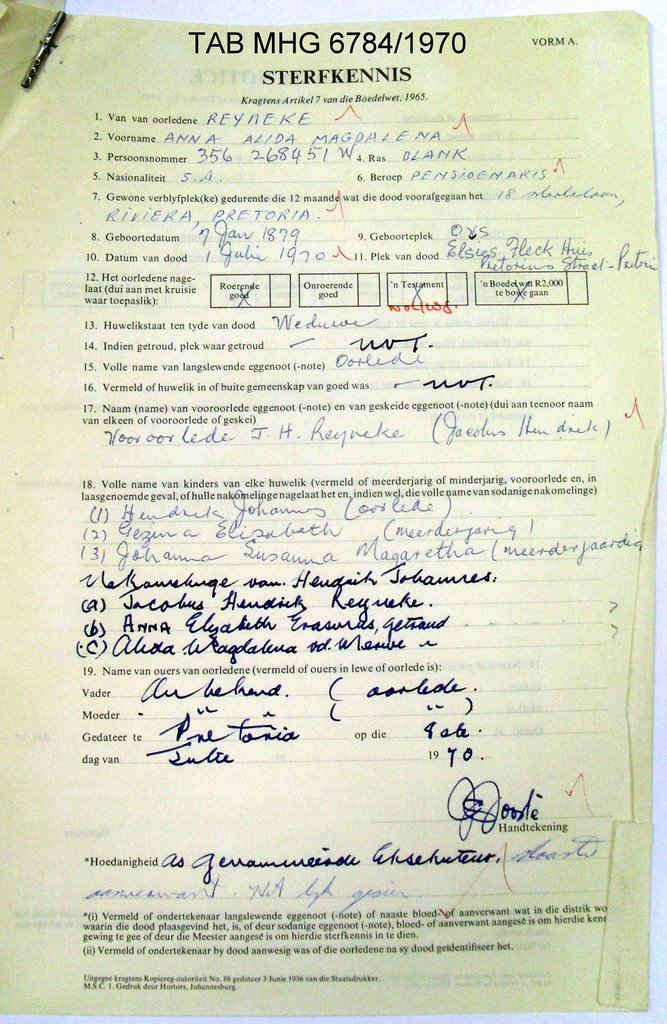 TAB MHG 6784/1970
VORM A.
STERFKENNIS
Kragtens Artikel 7 van die Boedelwet, 1965.
1. Van van oorledene REYNEKE
2. Voorname ANNA ALIDA MAGDALENA
3. Persoonsnommer 356 268451 W 4. Ras BLANK
5. Nasionaliteit S.A. 6. Beroep PENSIOENARIS
7. Gewone verblyfplek(ke) gedurende die 12 maande wat die dood voorafgegaan het 18
RIVIERA, PRETORIA.
8. Geboortedatum 7 Jan 1879 9. Geboorteplek OVS
10. Datum van dood 1 Julie 1970 11. Plek van dood Elsies Fleck Huis
Pretorius Straat - Pretoria
12. Het oorledene nage-
laat (dui aan met kruisie
waar toepaslik):
Roerende goed X
Onroerende goed
'n Testament
'n Boedel wat R2,000 te bowe gaan X
13. Huwelikstaat ten tyde van dood Weduwee
14. Indien getroud, plek waar getroud - nvt.
15. Volle name van langslewende eggenoot (-note) Oorlede
16. Vermeld of huwelik in of buite gemeenskap van goed was - nvt.
17. Naam (name) van vooroorlede eggenoot (-note) en van geskeide eggenoot (-note) (dui aan teenoor naam
van elkeen of vooroorlede of geskei)
Vooroorlede J. H. Reyneke (Jacobus Hendrik)
18. Volle name van kinders van elke huwelik (vermeld of meerderjarig of minderjarig, vooroorlede en, in
laasgenoemde geval, of hulle nakomelinge nagelaat het en, indien wel, die volle name van sodanige nakomelinge)
(1) Hendrik Johannes (oorlede)
(2) Gezina Elizabeth (meerderjarig)
(3) Johanna Susanna Magaretha (meerderjaardig
Nakomelinge van Hendrik Johannes:
(a) Jacobus Hendrick Reyneke.
(b) ANNA Elizabeth Erasmus, getroud
(c) Alida Magdalena vd. Merwe "
19. Name van ouers van oorledene (vermeld of ouers in lewe of oorlede is):
Vader Onbekend. (oorlede.
Moeder " " ( " )
Gedateer te Pretoria op die 8ste
dag van Julie 1970.
Handtekening
*Hoedanigheid as genomineerde Eksekuteur. naaste
aanverwant. Nie lyk gesien
*(i) Vermeld of ondertekenaar langslewende eggenoot (-note) of naaste bloed- of aanverwant wat in die distrik wo
waarin die dood plaasgevind het, is, of deur sodanige eggenoot (-note), bloed- of aanverwant aangesê is om hierdie kenn
gewing te gee of deur die Meester aangesê is om hierdie sterfkennis in te dien.
(ii) Vermeld of ondertekenaar by dood aanwesig was of die oorledene na sy dood geïdentifiseer het.
Uitgegee kragtens Kopiereg-outoriteit No. 86 gedateer 3 Junie 1936 van die Staatsdrukker.
M.S.C. 1. Gedruk deur Hortors, Johannesburg.